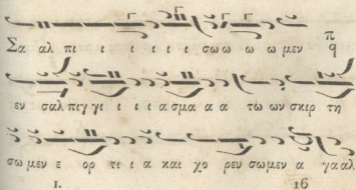 Σα αλ πι ι ι ι ι σω ω ω ω μεν π
εν σαλ πιγ γι ι ι ι α σμα α α τω ων σκιρ τη
σω μεν ε ορ τι ι α και χο ρευ σω μεν α γα αλ
1. 16